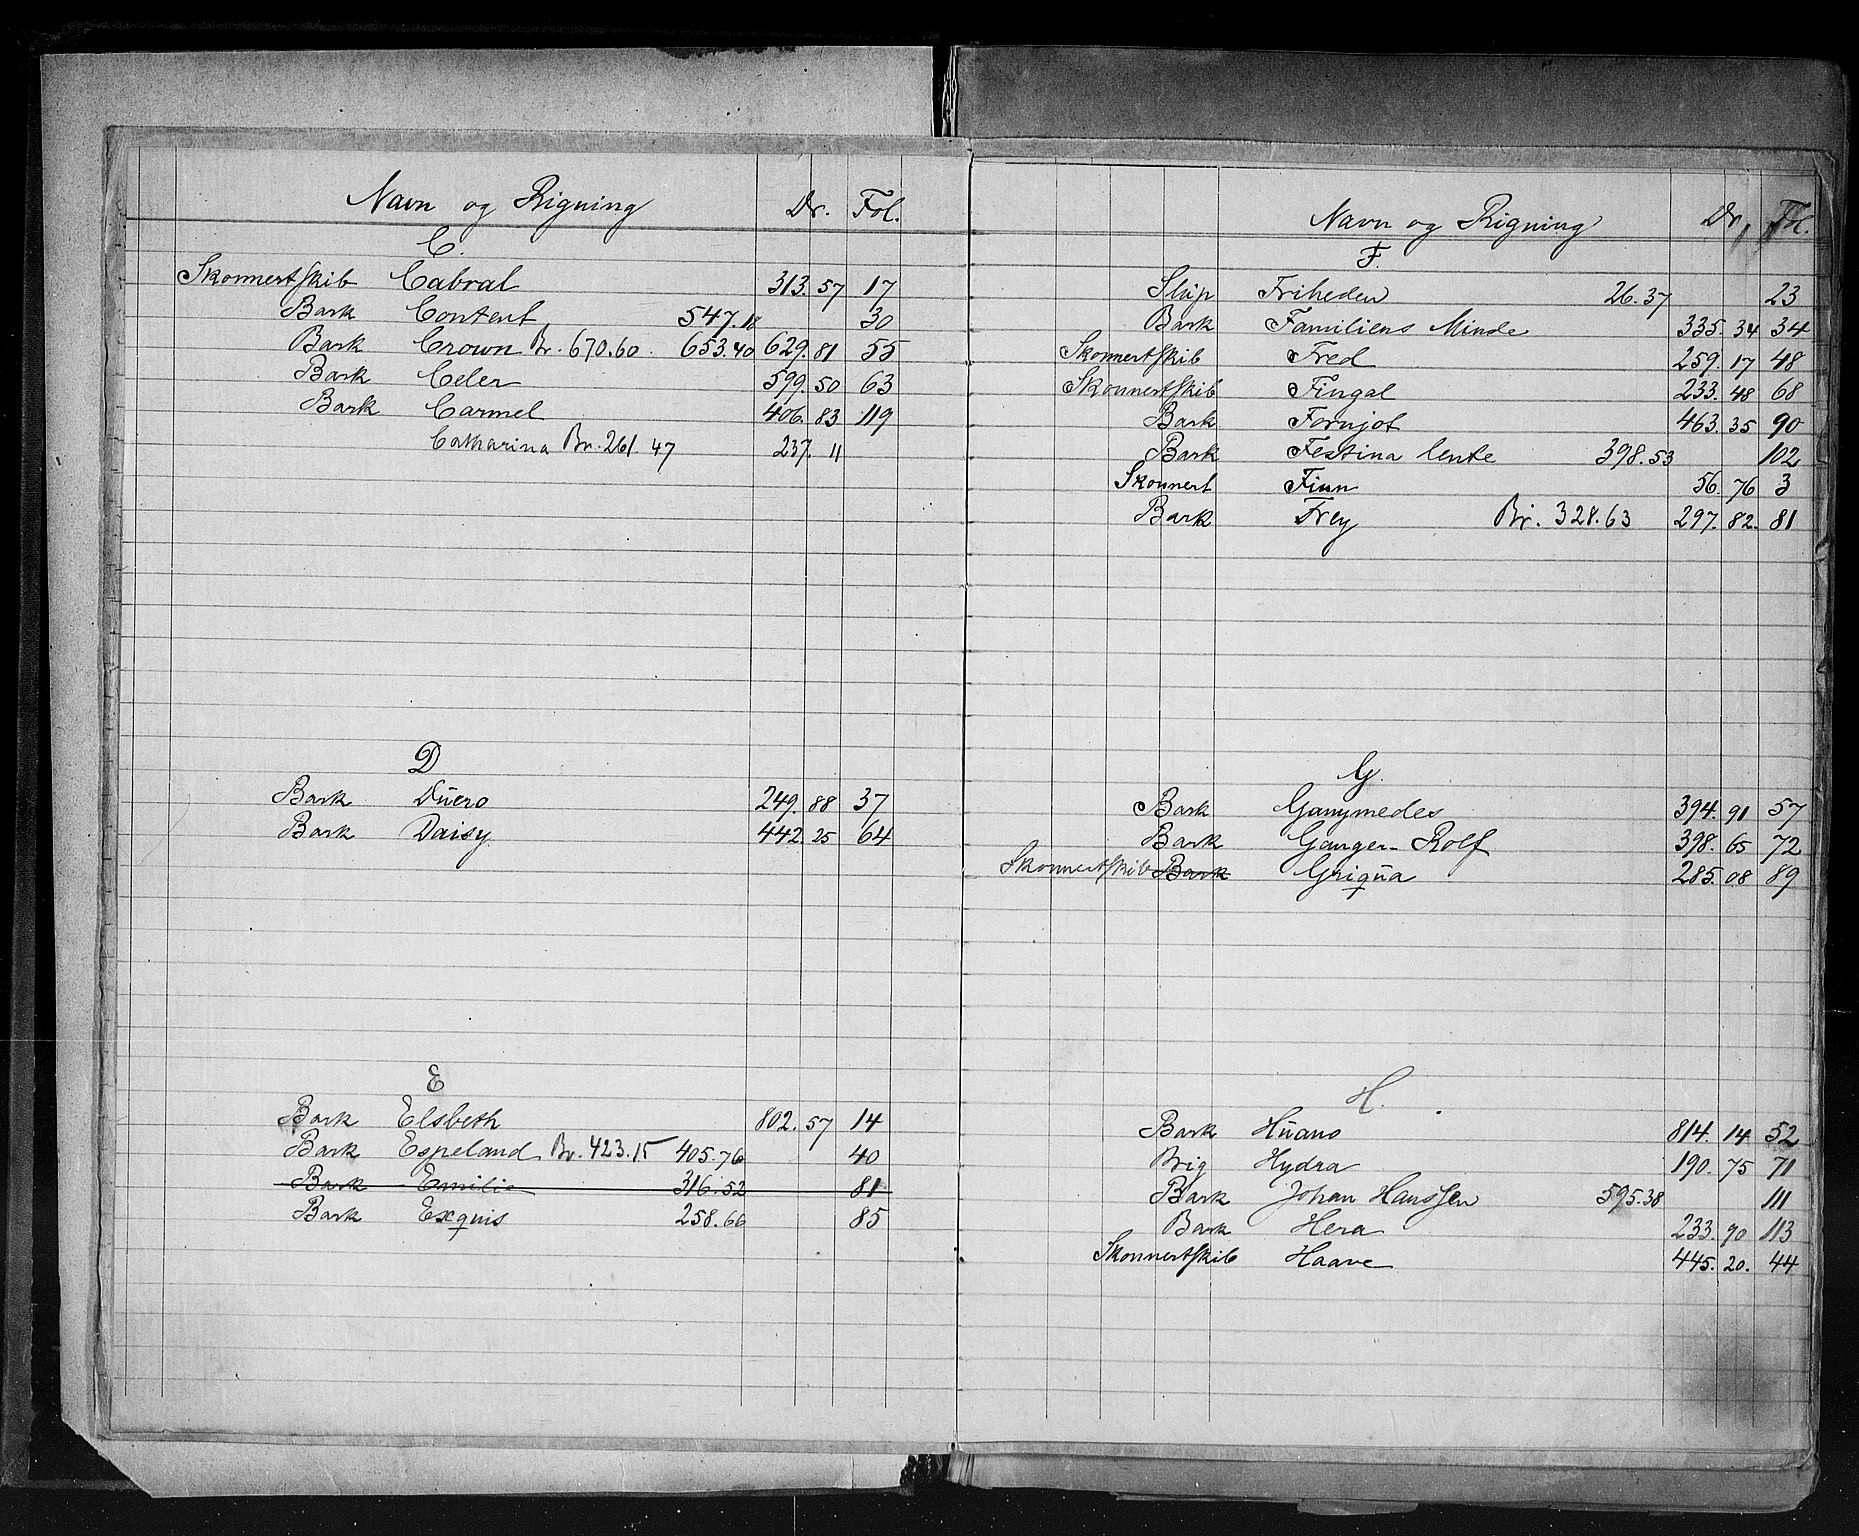 Navn og Rigning Dr. Fol.
C.
Skonnertskib Cabral 313. 57 17
Bark Content 547.18 30
Bark Crown Br. 670.60. 653.40 629. 81 55
Bark Celer 599. 50 63
Bark Carmel 406. 83 119
Catharina Br. 261.47 237. 11
D
Bark Duero 249. 88 37
Bark Daisy 442. 25 64
E
Bark Elsbeth 802. 57 14
Bark Espeland Br. 423.15 405.76 40
Bark Emilie 316.52 81
Bark Exquis 258.66 85
Navn og Rigning Dr. Fol.
F.
Slup Friheden 26.37 23
Bark Familiens Minde 335. 34 34
Skonnertskib Fred 259. 17 48
Skonnertskib Fingal 233. 48 68
Bark Fornjot 463. 35 90
Bark Festina lente 398.53 102
Skonnert Finn 56. 76 3
Bark Frey Br. 328.63 297. 82. 81
G.
Bark Ganymedes 394. 91 57
Bark Ganger-Rolf 398. 65 72
Skonnertskib Bark Griqua 285. 08 89
H.
Bark Huano 814. 14 52
Brig Hydra 190. 75 71
Bark Johan Hanssen 595.38 111
Bark Hera 233. 90 113
Skonnertskib Haave 445. 20. 44